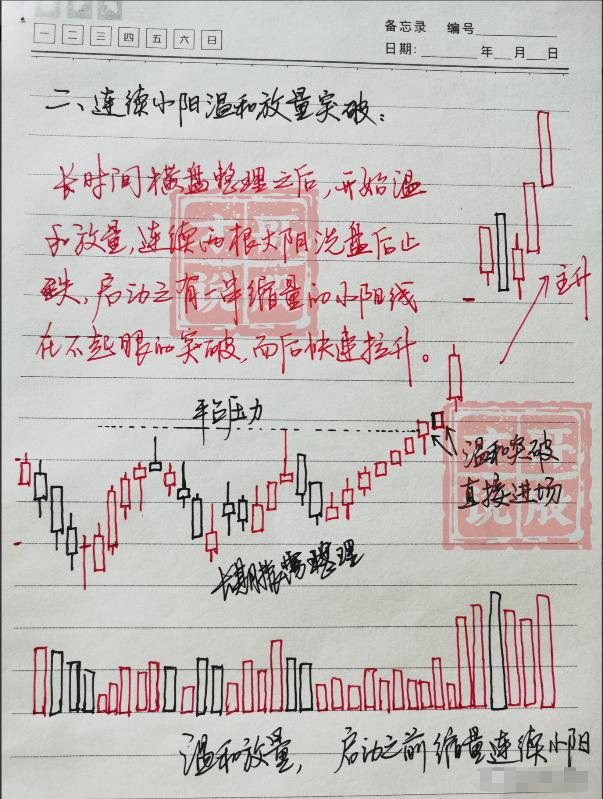 一 二 三 四 五 六 日
备忘录 编号
日期: 年 月 日
二、连续小阳温和放量突破:
长时间横盘整理之后,开始温
和放量,连续两根大阳洗盘后止
跌,启动之有一串缩量的小阳线
在不起眼的突破,而后快速拉升。
主升
平台压力
温和突破
直接进场
长期震荡整理
温和放量, 启动之前缩量连续小阳